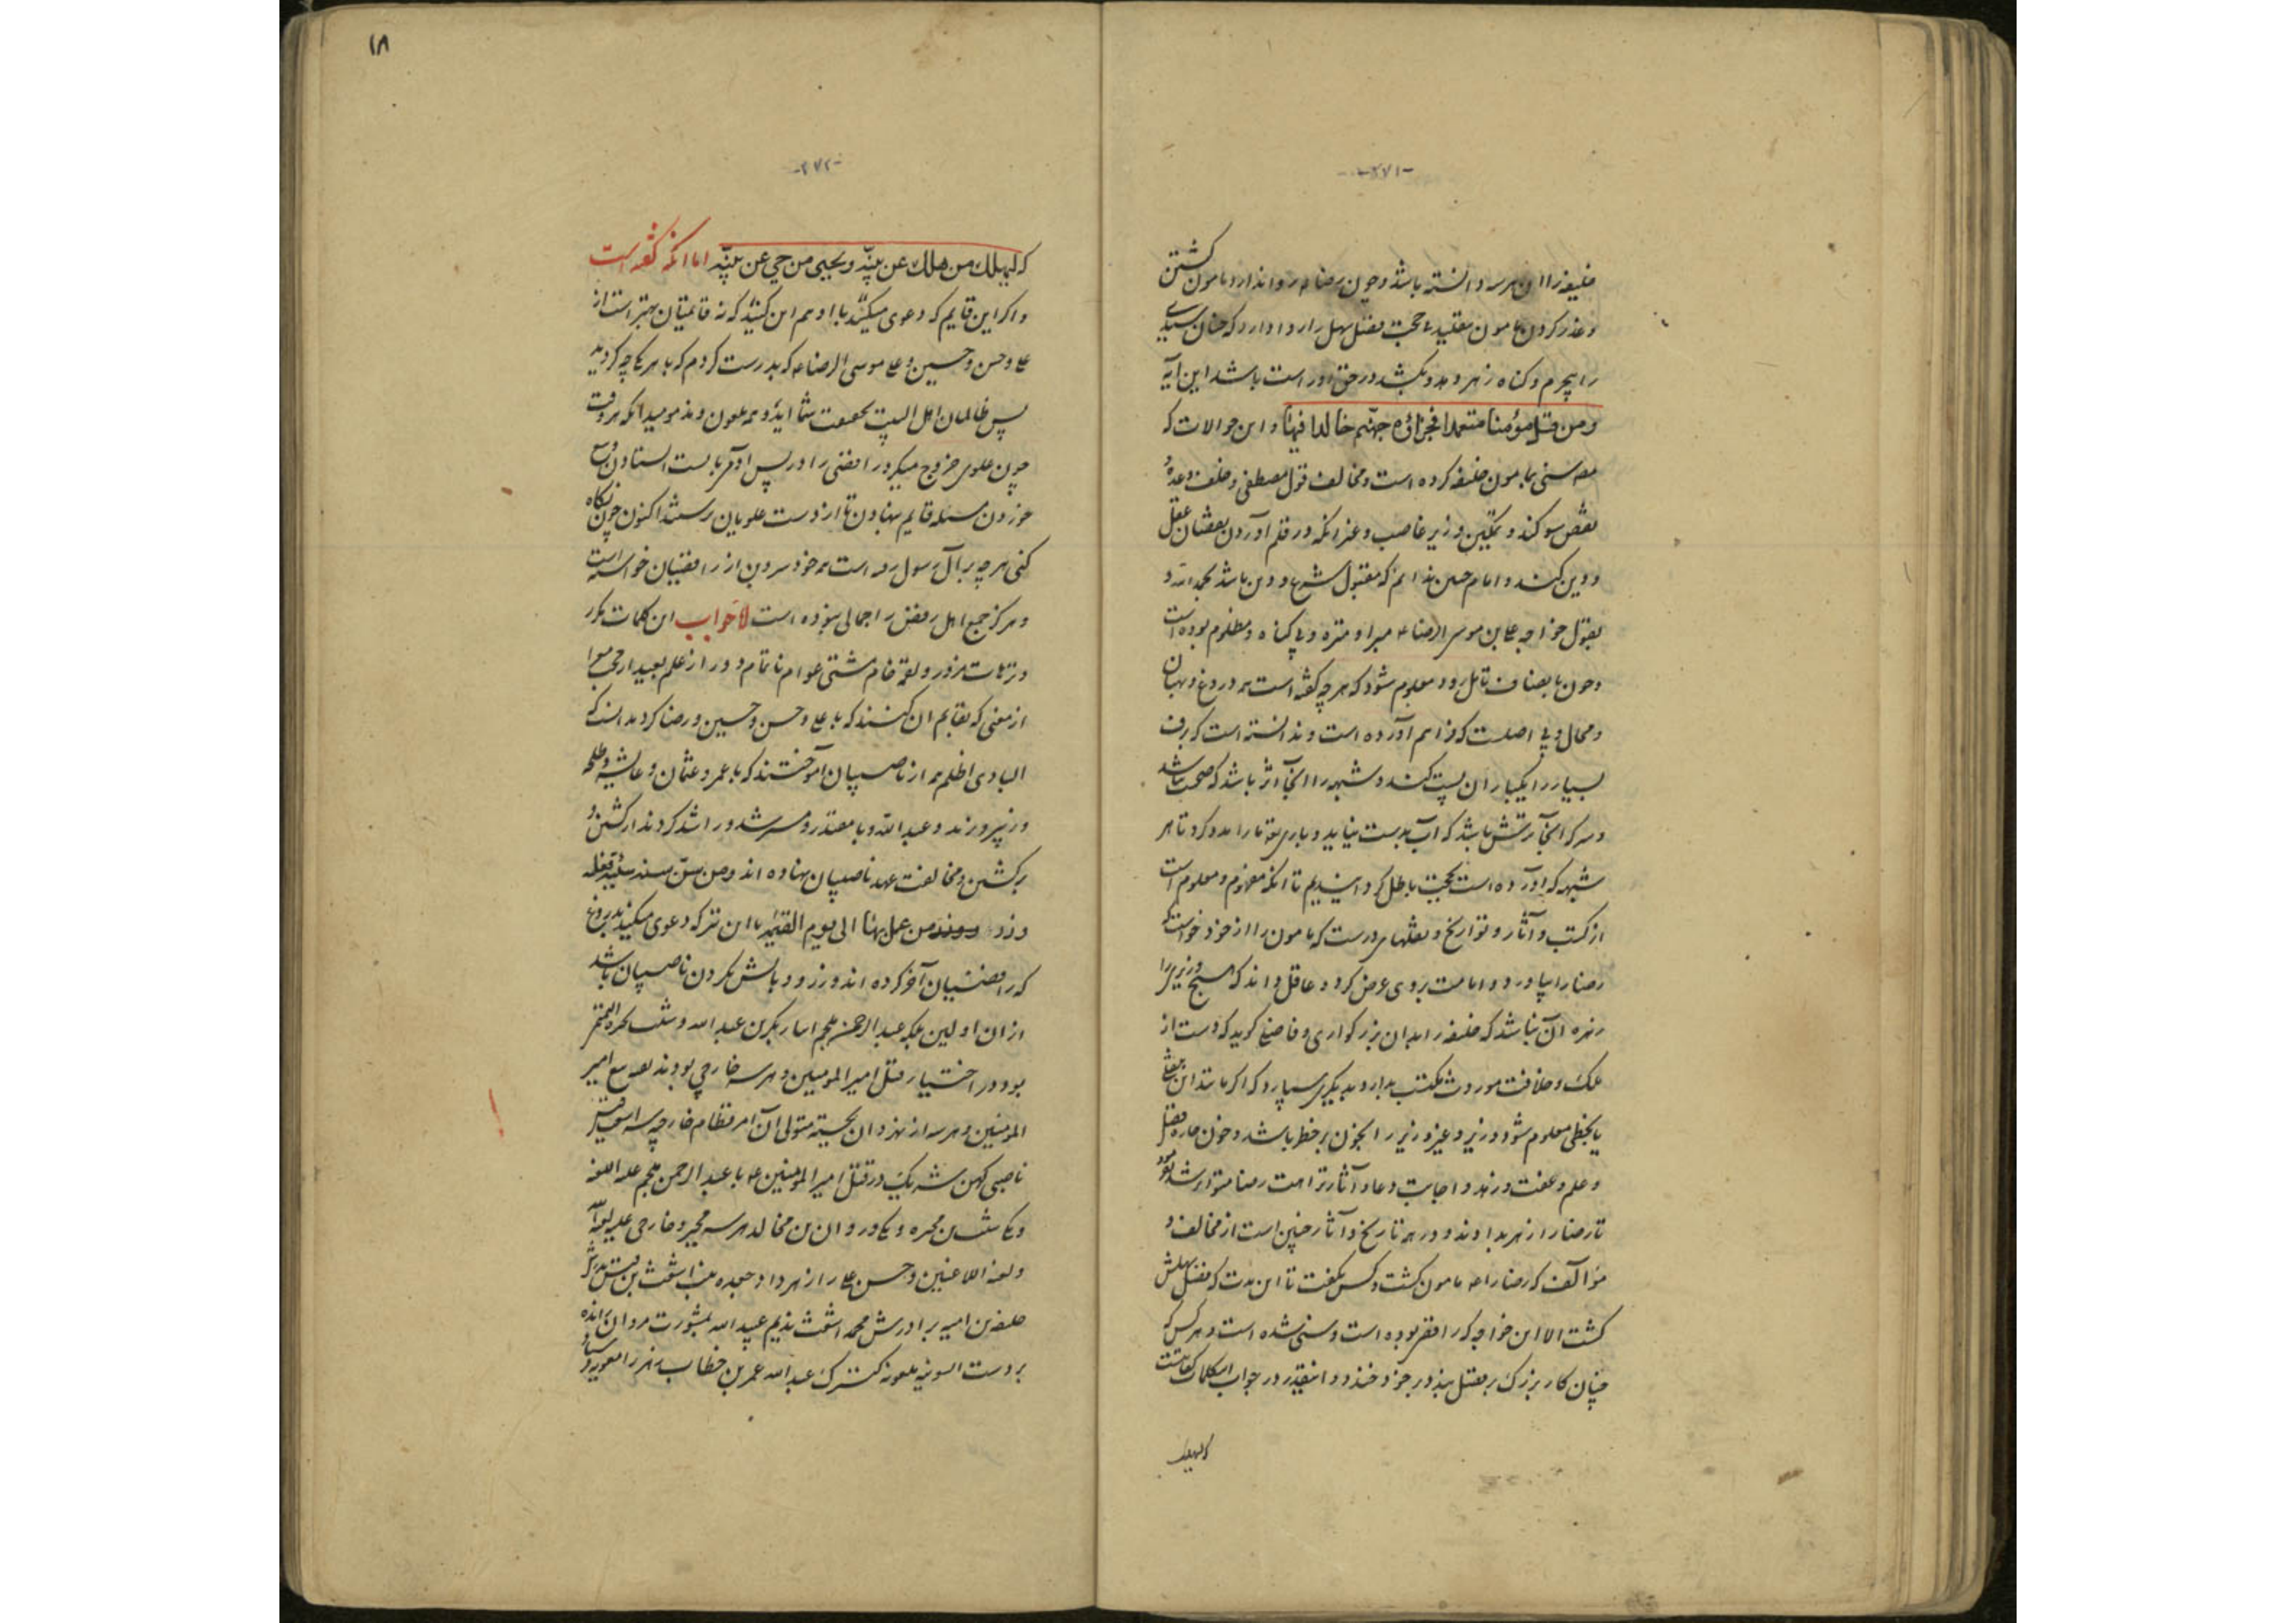 -۳۷۱-
خلیفه را این هر سه دانسته باشد و چون رضا ع روا ندارد مامون کشتن
و عذر کردن مامون بی حجت فضل سهل را روا دارد که چنان سیدی
را بیجرم و گناه زهر دهد و بکشد در حق او راست باشد این آیه
ومن قتل مؤمنا متعمدا فجزاؤه جهنم خالدا فیها و این حوالات که
سنی بمامون خلیفه کرده است و مخالفت قول مصطفی و خلف وعده
نقض سوگند و تمکین وزیر غاصب و غیر آنکه در قلم آوردن نقصان عقل
و دین کند و امام چنین ندانم که مقبول شرع و دین باشد بحمد الله و
بقول خواجه علی بن موسی الرضا ع مبرا و منزه و بی گناه و مظلوم بوده است
و چون بانصاف تامل رود معلوم شود که هر چه گفته است همه دروغ و بهتان
و محال و بی اصلست که فراهم آورده است و ندانسته است که برف
بسیار را یکبار آن پست کند و شبهه را آنجا اثر باشد که حجت نباشد
و سرکه آنجا ترش باشد که آب بدست نیاید و باری تعالی ما را مدد کرد تا هر
شبهه که آورده است بحجت باطل گردانیدیم تا آنکه مفهوم و معلوم است
از کتب و آثار و تواریخ و نقلهای درست که مامون را از خود خواست که
رضا را بیاورد و امامت بروی عرض کرد و عاقل داند که هیچ وزیری را
زهره آن نباشد که خلیفه را بدان بزرگواری و فاضلی گوید که دست از
ملک و خلافت موروث مکتسب بدار و بدیگری سپارد که اگر مانند این
یا بخطی معلوم شود وزیر و غیر وزیر را بخون بر خطر باشد و خون
و علم و عفت و زهد و اجابت دعا و آثار کرامت رضا متواتر شد
تا رضا را زهر بدادند و در همه تاریخ و آثار چنین است از مخالف و
مؤالف که رضا را ع مامون کشت و کس نگفت تا این مدت که فضل سهلش
کشت الا این خواجه که رافضی بوده است و سنی شده است و هر کس که
چنان کار بزرگ بر فضل بندد بر خود خندد و اینقدر در جواب این کلمات کفایتست
که لیهلک
۱۸
-۳۷۲-
که لیهلک من هلک عن بینة ویحیی من حی عن بینة اما آنکه گفته است
و اگر این قایم که دعوی میکنند با او هم این کنید که نه قایمتان بهتر است از
علی و حسن و حسین و علی موسی الرضا ع که بدرست کردم که با هر یکی چه کردید
پس ظالمان اهل البیت بحقیقت شما اید و همه ملعون و مذمومید آنکه هر وقت
چون علوی خروج میکرد رافضی را در پس او می بایست استادن
خوردن مسئله قایم بنهادن تا از دست علویان برستند اکنون چون نگاه
کنی هر چه بر آل رسول رفته است همه خود سر و بن از رافضیان خواسته است
و هرگز جمع اهل رفض را جمالی نبوده است الجواب این کلمات مکرر
و ترهات مزور و لقمه خام مشتی عوام ناتمام و دور از علم بعید از حجت
از معنی که بقایم آن کنند که با علی و حسن و حسین و رضا کردند آنست که
البادی اظلم همه از ناصبیان آموختند که با عمر و عثمان و عایشه و طلحه
و زبیر ورزند و عبد الله و با مقتدر و مسترشد و راشد کردند از کشتن و
بر کشتن و مخالفت عهد ناصبیان نهاده اند ومن سن سنة سیئة فعلیه
وزر من عمل بها الی یوم القیمة با این ترکه دعوی میکنند بدروغ
که رافضیان آخر کرده اند و زر و وبالش بگردن ناصبیان باشد
از آن اولین بلکه عبد الرحمن ملجم با یار بکر بن عبد الله و
بود در اختیار قتل امیر المومنین و هر سه خارجی بودند
المومنین و هر سه از نهروان بجسته متولی آن امر
ناصبی کهن شریک در قتل امیر المومنین ع با عبد الرحمن ملجم علیه اللعنه
و یکی شبث بن بجره و یکی وردان بن مخالد هر سه مجبر و خارجی علیهم لعنة الله
و لعنة اللاعنین و حسن علی را زهر داد جعده بنت اشعث بن قیس بدرش
خلیفه بن امیه برادرش محمد اشعث ندیم عبید الله بمشورت مروان
بر دست السونیه ملعونه کنیزک عبد الله عمر بن خطاب زهر را معویه